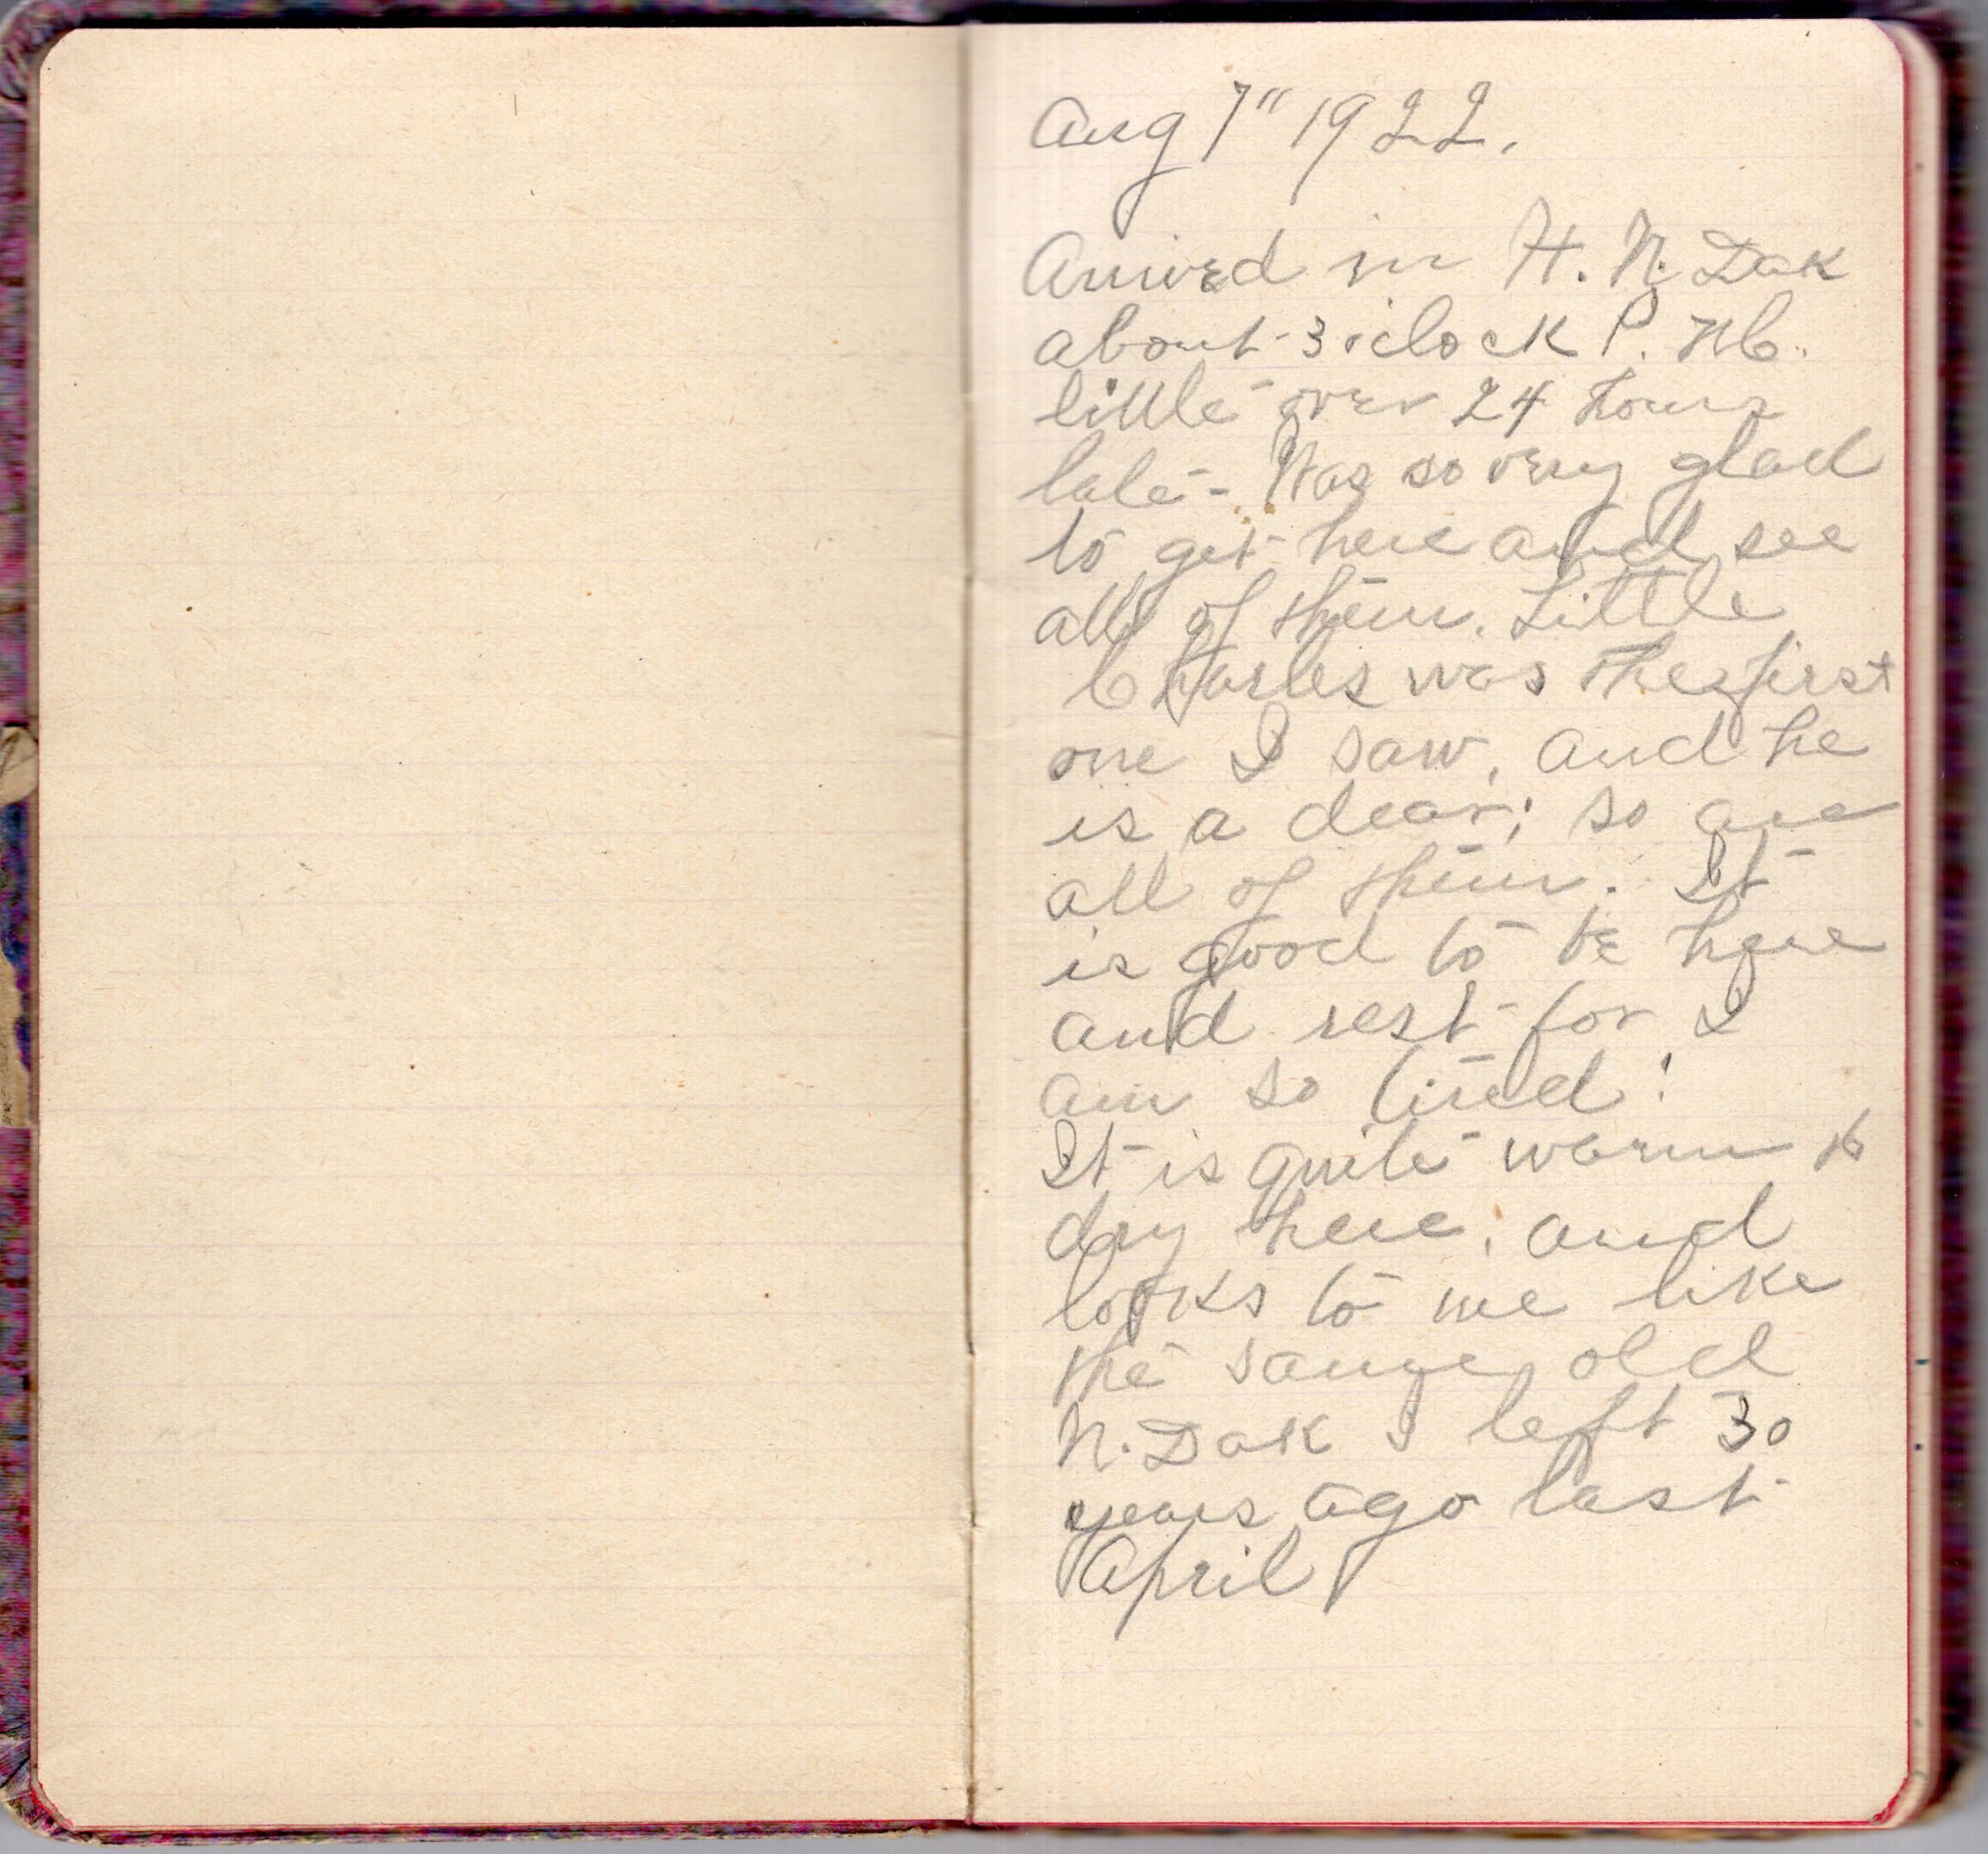 Aug 7" 1922.
Arrived in H. N. Dak
about 3 o'clock P. M.
little over 24 hours
late - Was so very glad
to get here and see
all of them. Little
Charles was the first
one I saw, and he
is a dear; so are
all of them. It
is good to be here
and rest for I
am so tired!
It is quite warm &
dry here, and
looks to me like
the same old
N. Dak I left 30
years ago last
April